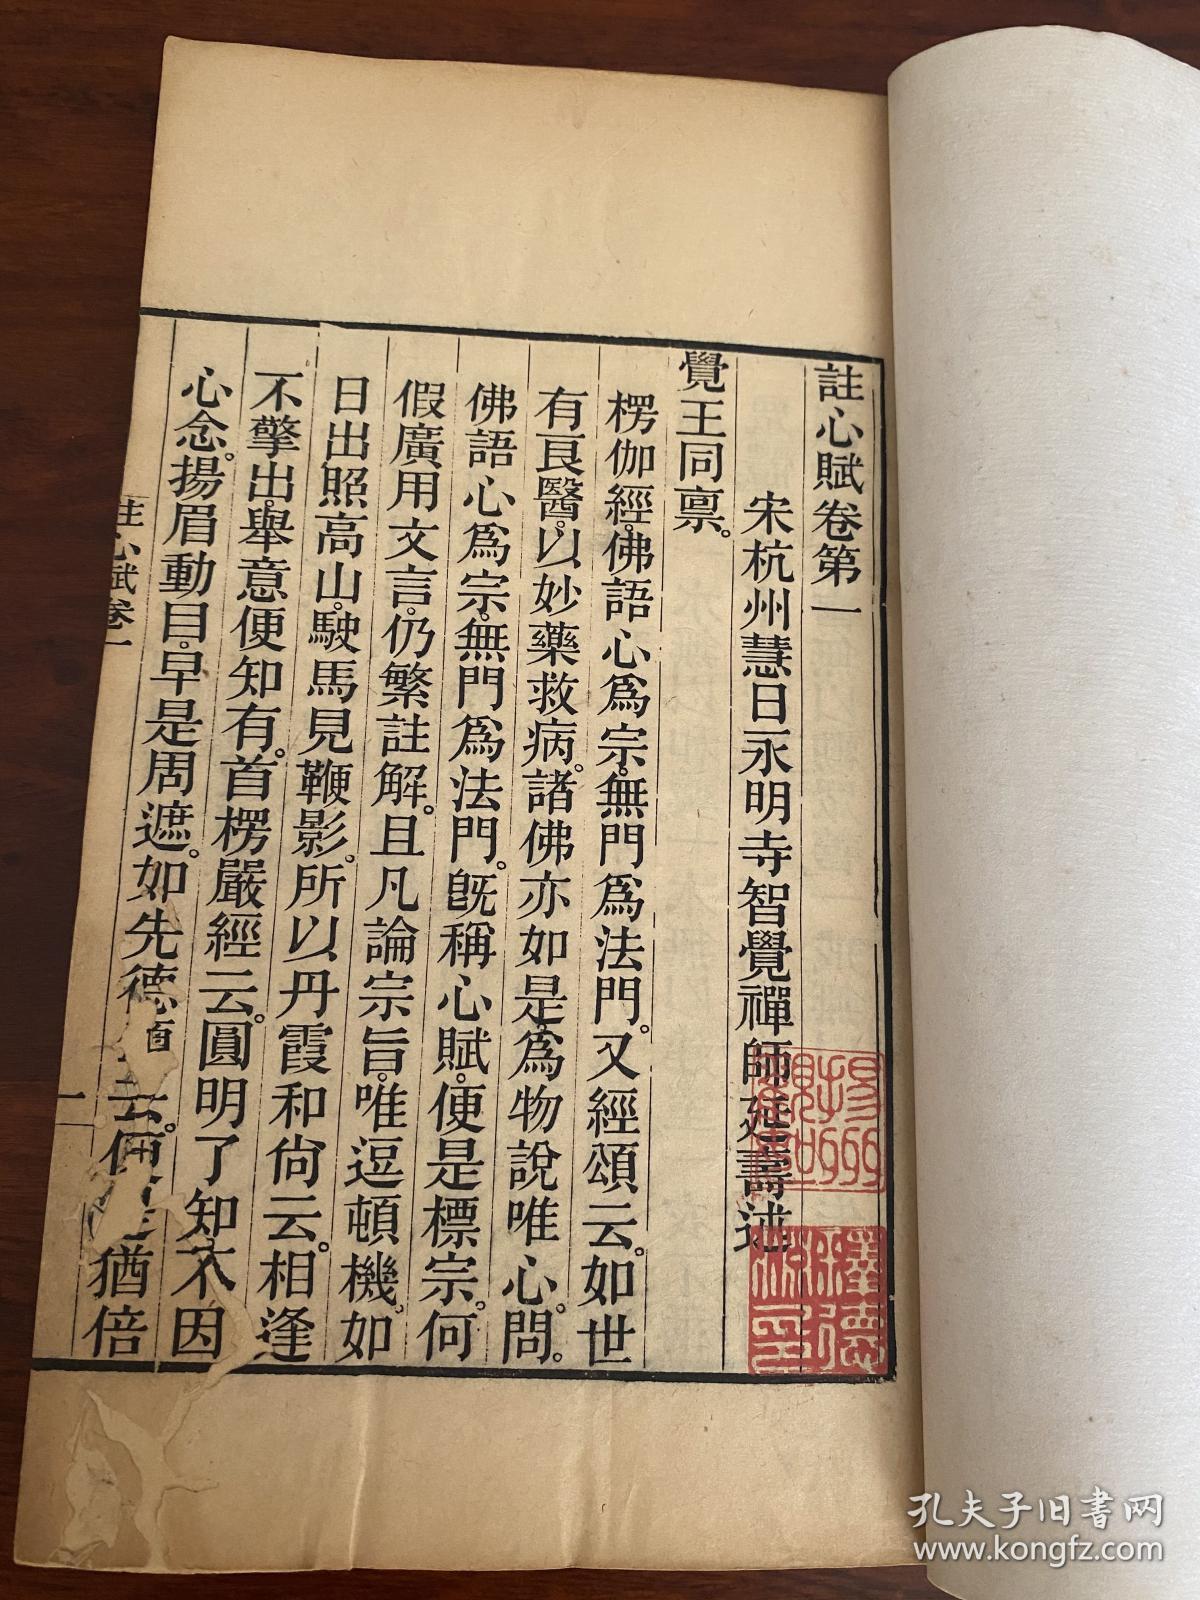 註心賦卷第一
宋杭州慧日永明寺智覺禪師延壽述
覺王同禀。
楞伽經。佛語心爲宗。無門爲法門。又經頌云。如世
有良醫。以妙藥救病。諸佛亦如是。爲物說唯心。問。
佛語心爲宗。無門爲法門。旣稱心賦。便是標宗。何
假廣用文言。仍繁註解。且凡論宗旨。唯逗頓機。如
日出照高山。駛馬見鞭影。所以丹霞和尙云。相逢
不擎出。舉意便知有。首楞嚴經云。圓明了知。不因
心念。揚眉動目。早是周遮。如先德云。猶倍
註心賦卷一
一
孔夫子旧書网
www.kongfz.com